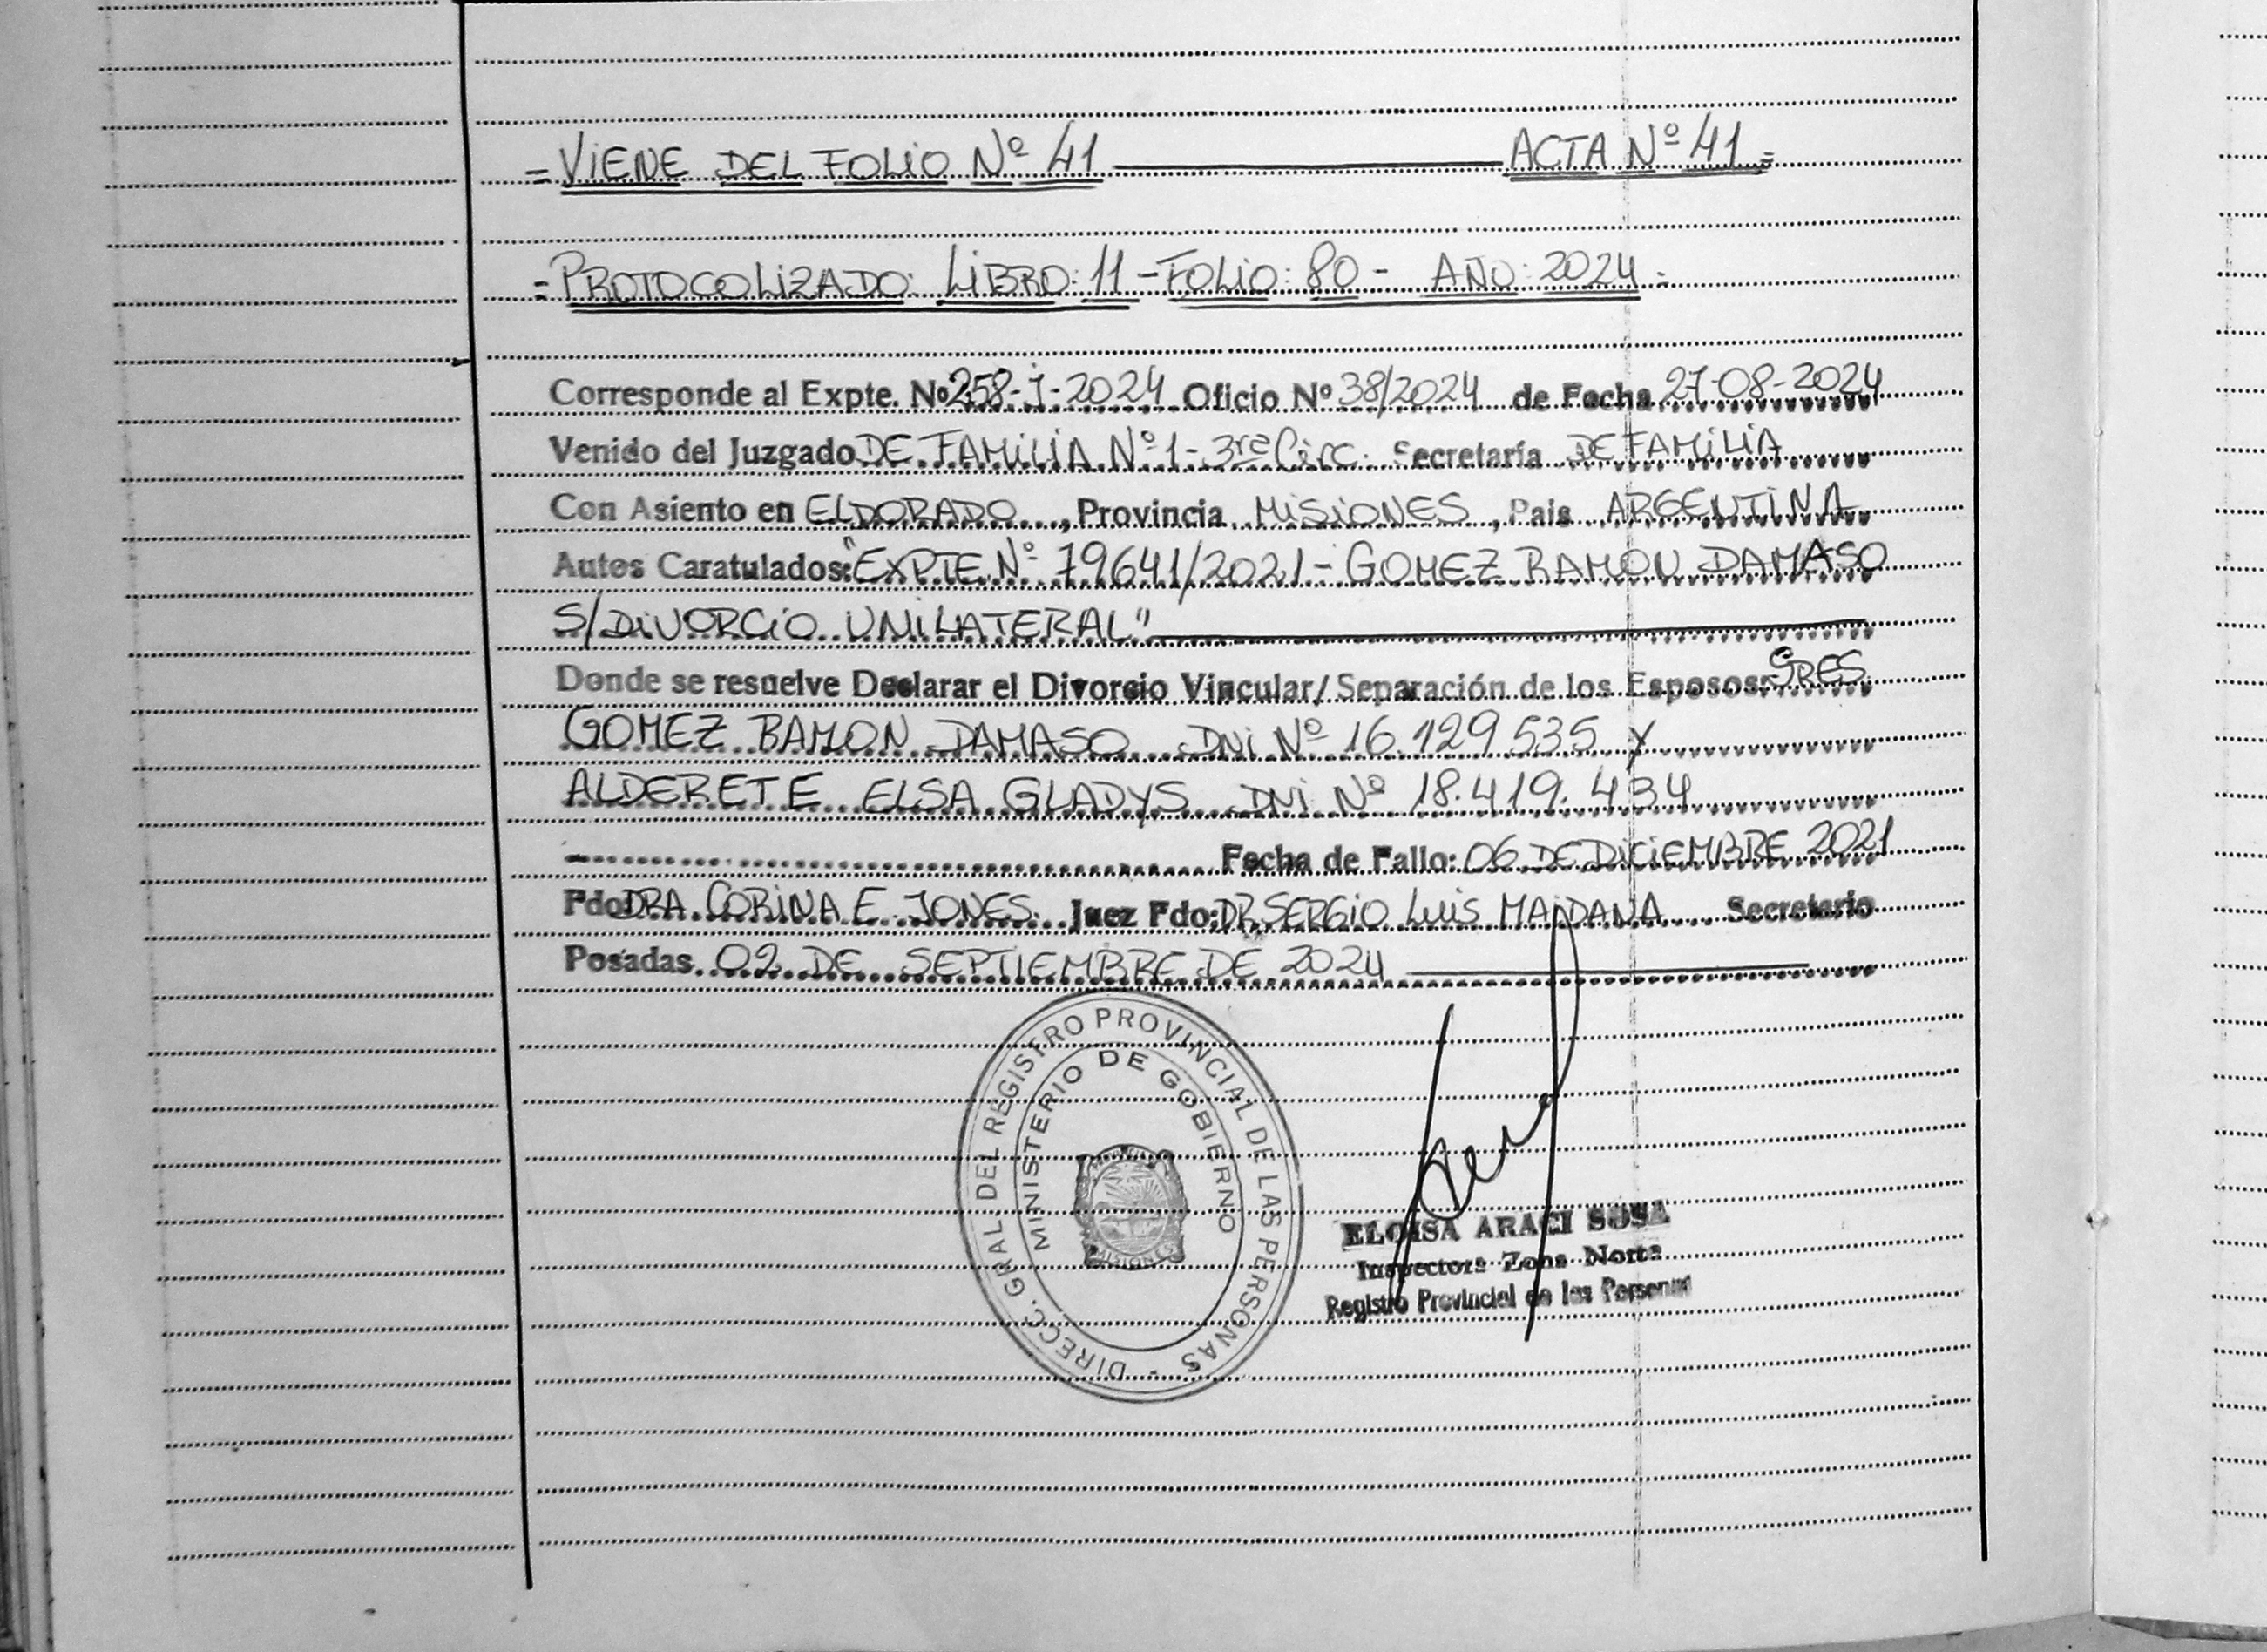 = VIENE DEL FOLIO Nº 41 ACTA Nº 41 =
= PROTOCOLIZADO: LIBRO: 11 - FOLIO: 80 - AÑO: 2024 =
Corresponde al Expte. Nº 258-J-2024 Oficio Nº 38/2024 de Fecha 27-08-2024
Venido del Juzgado DE FAMILIA Nº 1 - 3ra Circ. Secretaría DE FAMILIA
Con Asiento en ELDORADO, Provincia MISIONES, Pais ARGENTINA
Autos Caratulados: "EXPTE Nº 79641/2021 - GOMEZ RAMON DAMASO
S/DIVORCIO UNILATERAL"
Donde se resuelve Declarar el Divorcio Vincular/Separación de los Esposos: SRES
GOMEZ RAMON DAMASO DNI Nº 16.129.535 y
ALDERETE ELSA GLADYS DNI Nº 18.419.434
Fecha de Fallo: 06 DE DICIEMBRE 2021
Fdo: DRA CORINA E. JONES. Juez Fdo: DR. SERGIO LUIS MAIDANA Secretario
Posadas. 02 DE SEPTIEMBRE DE 2024
DIRECC. GRAL. DEL REGISTRO PROVINCIAL DE LAS PERSONAS -
MINISTERIO DE GOBIERNO
PROVINCIA DE
MISIONES
ELOISA ARACI SOSA
Inspectora Zona Norte
Registro Provincial de las Personas